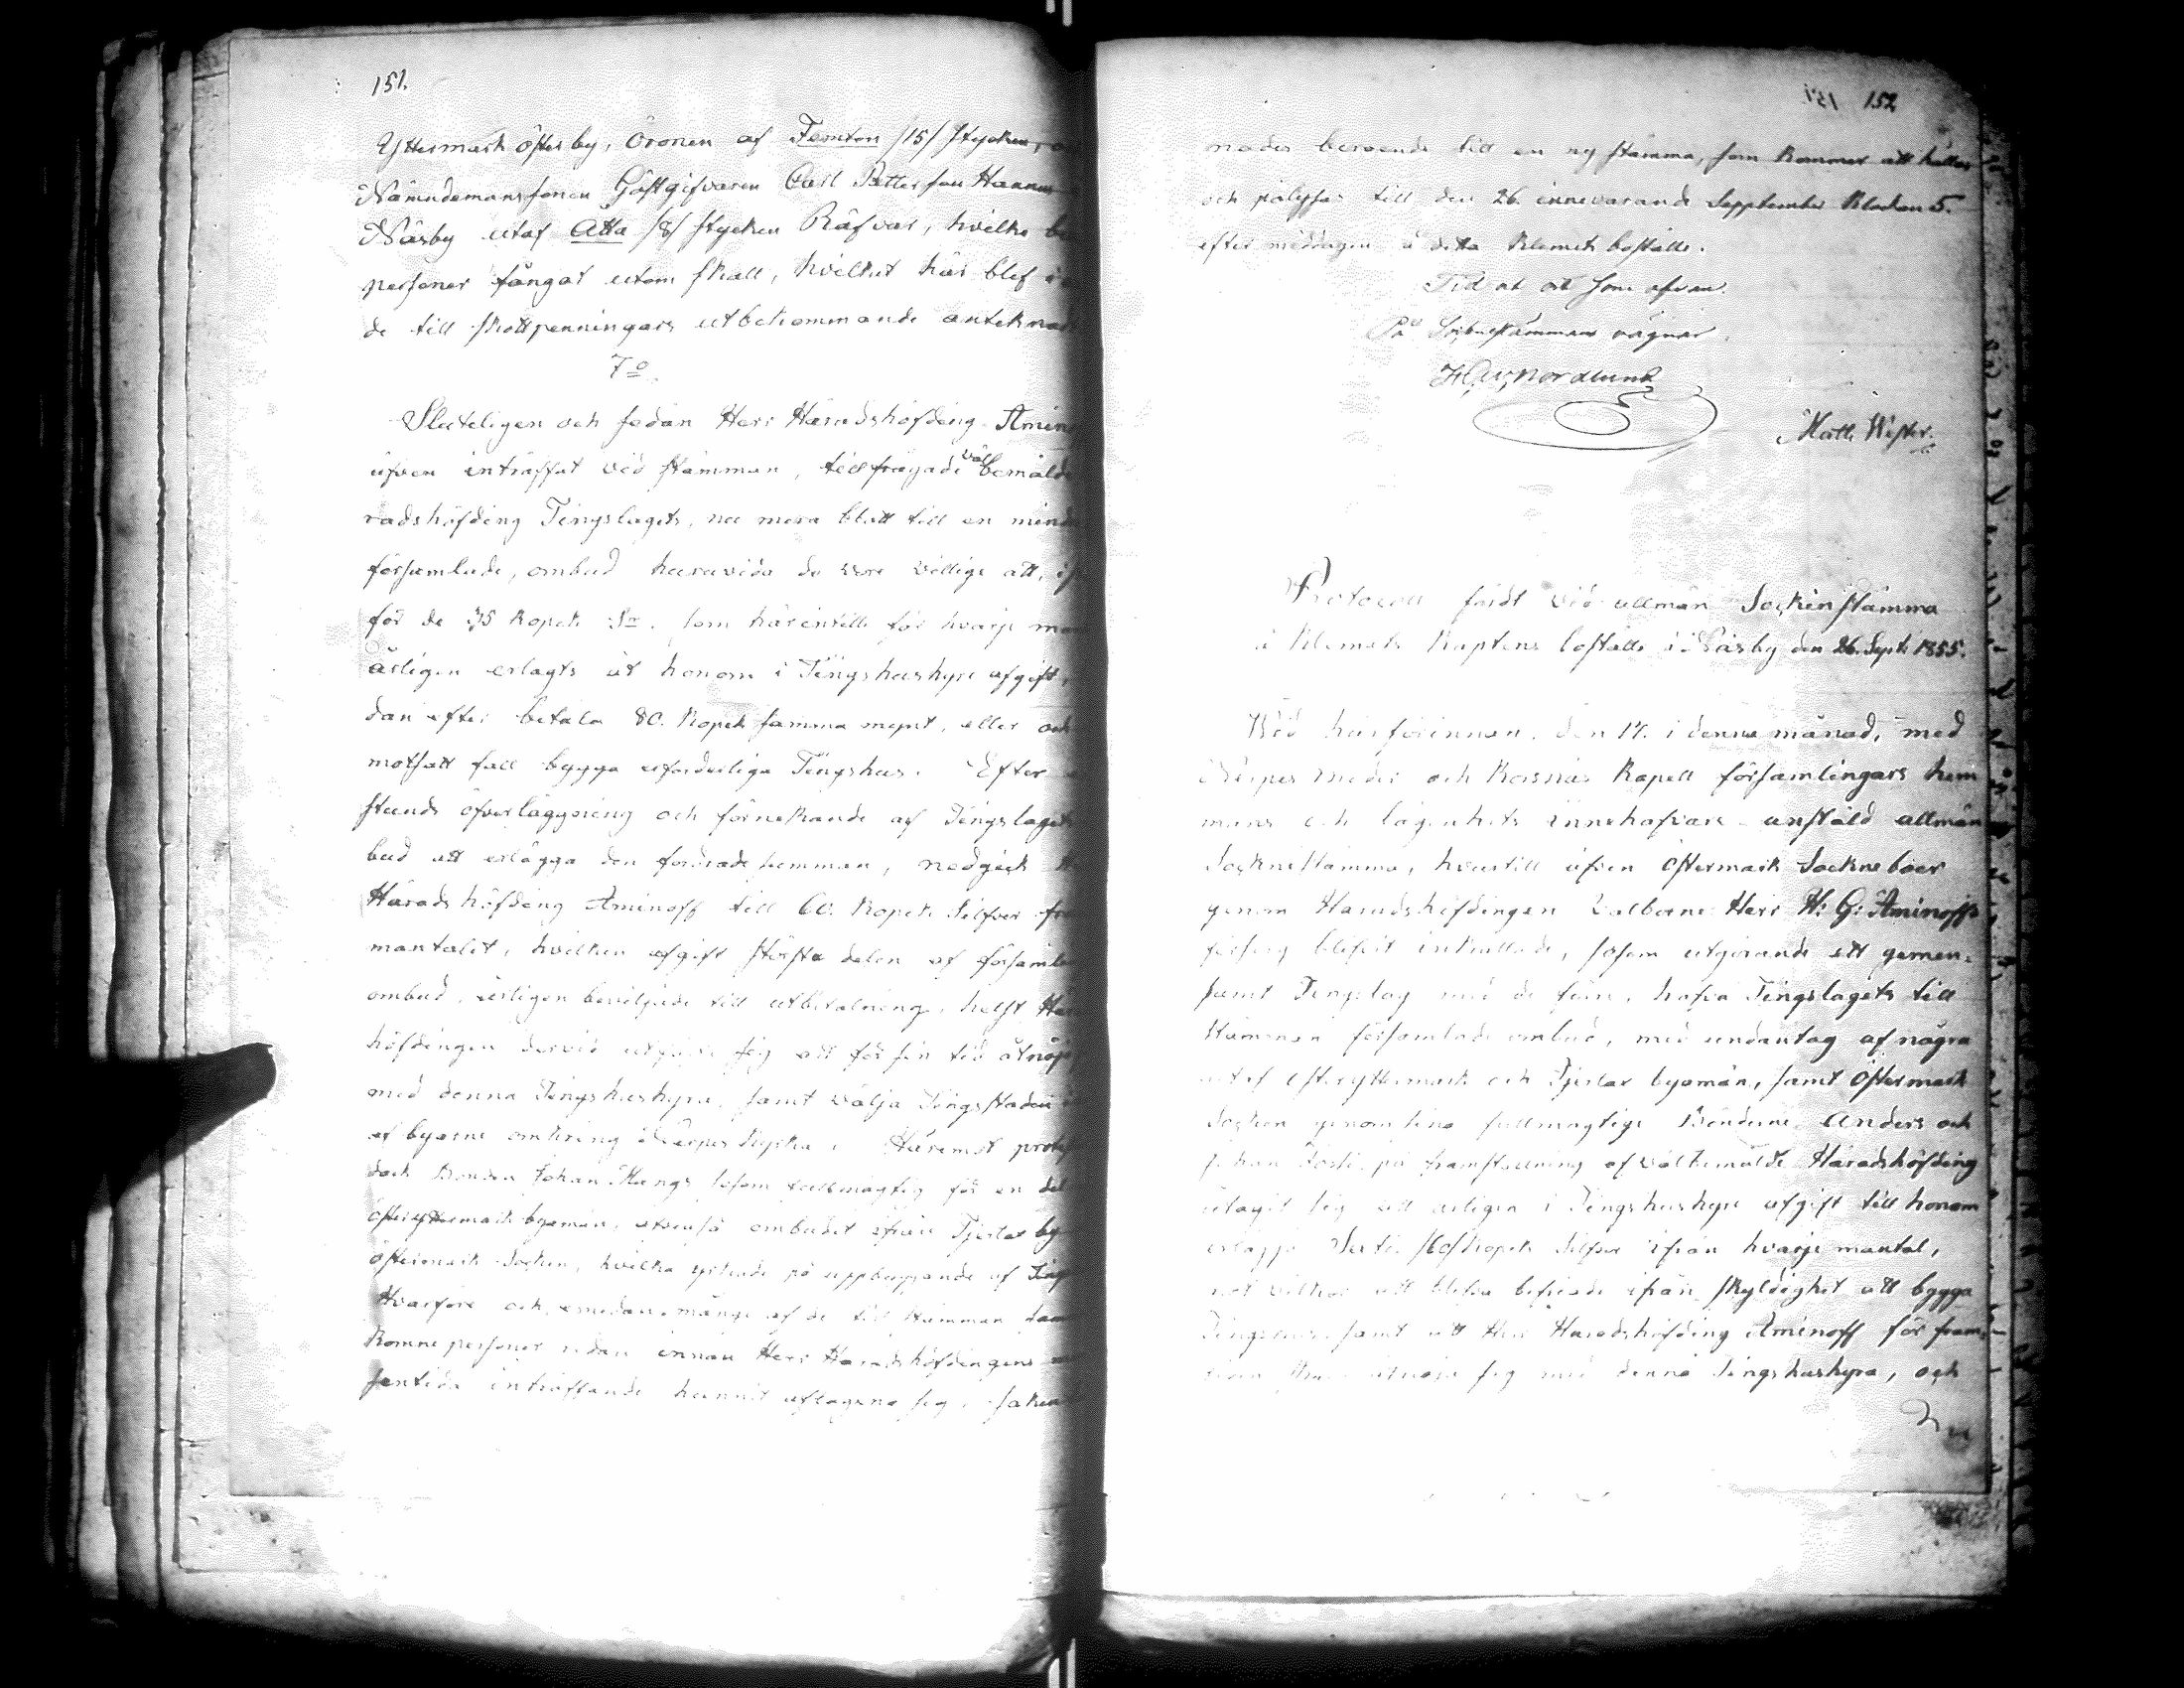 151.
Yttermark öfter by, Öronen af Femton /15/ stycken,
Nämndemanssonen Gästgifvaren Carl Pettersson Hannus
Näsby utaf Åtta /8/ stycken Räfvar, hvilka
personer fångat utom skall, hvilket här blef
de till skottpenningars utbekommande antekna
7o
Sluteligen och sedan Herr Häradshöfding Amin
äfven inträffat vid stämman, tillfrågade väl bemälde
radshöfding Tingslagets, nu mera blott till en mind
församlade, ombud huruvida de vore villige att,
för de 35 Kopek Sr. som härintills för hvarje man
årligen erlagts åt honom i Tingshushyre afgift,
dan efter betala 80. Kopek samma mynt, eller och
motsatt fall bygga erforderliga Tingshus. Efter
stunds öfverläggning och förnekande af Tingslagets
bud att erlägga den fordrade summan, nedgick
Härads höfding Aminoff till 60. Kopek Silfver
mantalet, hvilken afgift största delen af församla
ombud, årligen beviljade till utbetalning, helst
höfdingen dervid sig att för sin tid åtnöj
med denna Tingshushyra, samt välja Tingsstaden
af byarne omkring Nerpes Kyrka. Häremot prote
dock Bonden Johan Mangs såsom fullmägtig för en del
öfteryttermark byamän, äfvenså ombudet ifrån Tjerlax by
Öftermark Socken, hvilka yrkade på uppbyggande af Ting
Hvarföre och emedan många af de till stämman
komne personer redan innan Herr Häradshöfdingens
sentida inträffande hunnit aflägsna sig,
151. 152
nades beroende till en ny stämma, som kommer att hållas
och pålyses till den 26. innevarande September Klockan 5.
efter middagen å detta Klemets boställe.
Tid och ort som ofvan.
På Sockenstämmans vägnar.
Nordlund
Matts Wester.
Protocoll fördt vid allmän Sockenstämma
å Klemets Kaptens boställe i Näsby den 26. Sept. 1855.
Vid härförinnan, den 17. i denna månad, med
Nerpes moder och Korsnäs Kapell församlingars hem
mans och lägenhets innehafvare anstäld allmän
Sockne stämma, hvartill äfven Öftermark Sockneboer
genom Häradshöfdingen Välborne Herr H: G: Aminoffs
försorg blifvit inkallade, såsom utgörande ett gemen-
samt Tingslag med de förre, hafva Tingslagets till
stämman församlade ombud, med undantag af några
utaf öfteryttermark och Tjerlax byamän, samt Öftermark
Socken genom sine fullmägtige Bönderne Anders och
Johan på framställning af välbemälde Häradshöfding
åtagit sig att årligen i Tingshushyre afgift till honom
erlägga Sextio /60/ Kopek Silfver ifrån hvarje mantal,
mot vilkor att blifva befriade ifrån skyldighet att bygga
Tingshus samt att Herr Häradshöfding Aminoff för fram-
tiden åtnöja sig med denna Tingshushyra, och